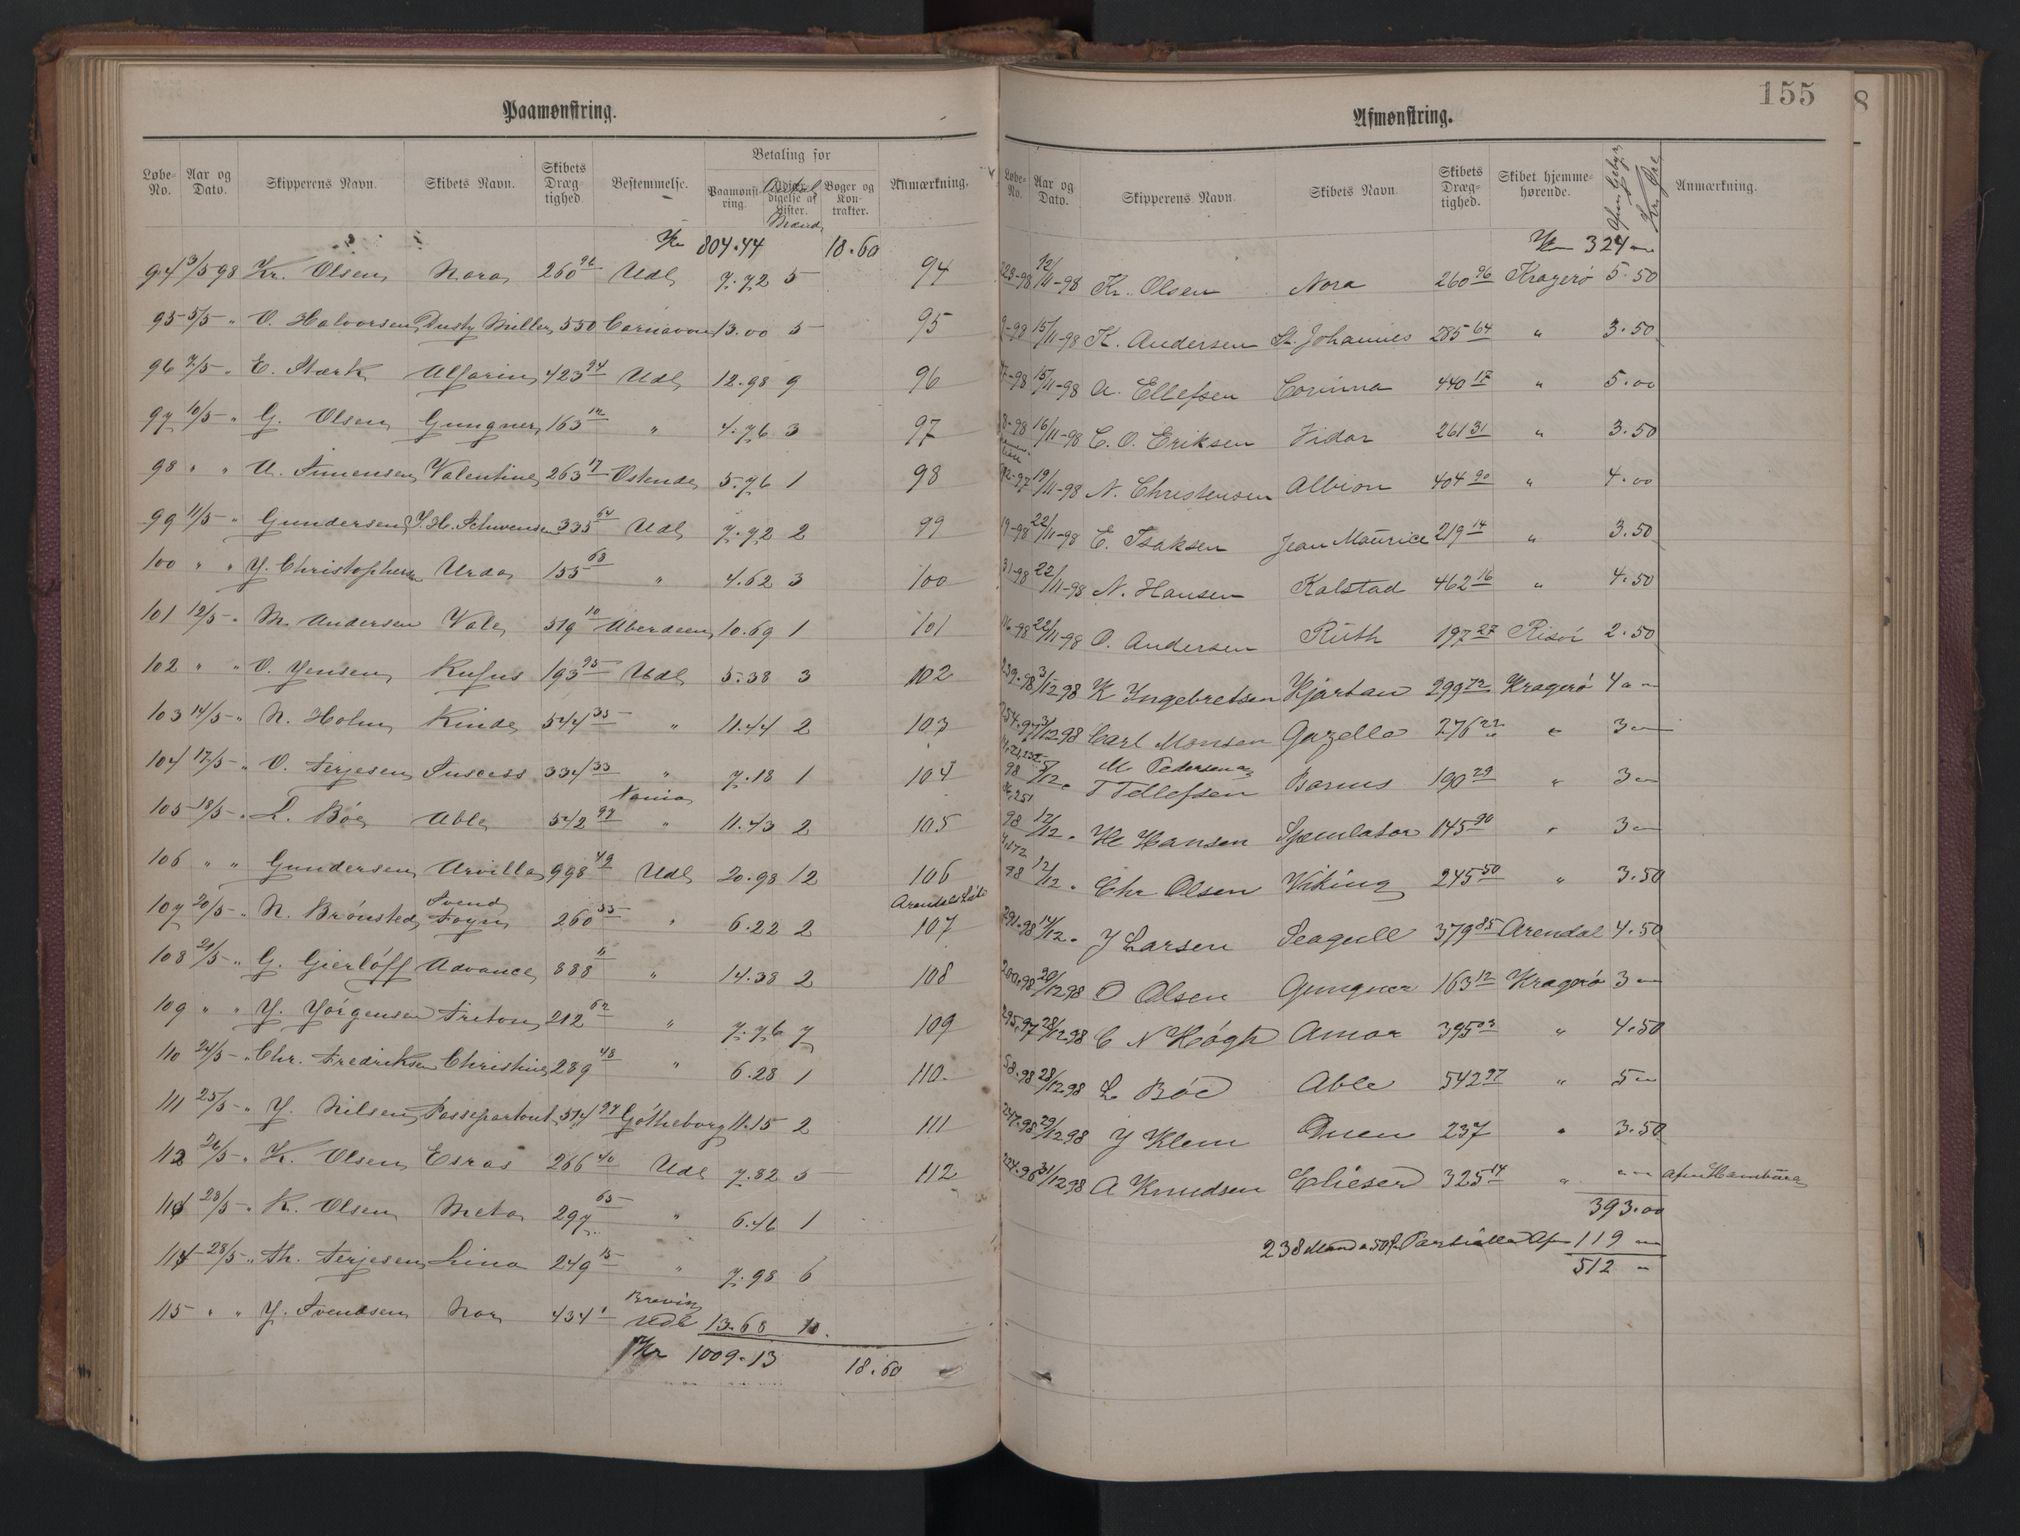 Paamønstring.
Løbe-No. Aar og Dato. Skipperens Navn. Skibets Navn. Skibets Dræg-tighed. Bestemmelse. Betaling for Paamønst-ring. Udfær-digelse af Lister. Antal Mænd Bøger og Kon-trakter. Anmærkning.
Kr 804.44 18.60
94 3/5 98 Kr. Olsen Nora 260 96 Udl 7.72 5 94
95 5/5 " O. Halvorsen Dusty Miller 550 Carnavon 13.00 5 95
96 7/5 " E. Stærk Alfarin 423 94 Udl 12.98 9 96
97 10/5 " G. Olsen Gungner 163 12 " 4.76 3 97
98 " " A. Simensen Valentine 263 17 Ostende 5.76 1 98
99 11/5 " Gundersen J. H. Schwensen 335 64 Udl 7.72 2 99
100 " " J. Christophersen Urda 155 63 " 4.62 3 100
101 12/5 " M. Andersen Vale 519 10 Aberdeen 10.69 1 101
102 " " O. Jensen Rufus 193 95 Udl 5.38 3 102
103 14/5 " N. Holm Kinde 544 35 " 11.44 2 103
104 17/5 " O. Terjesen Success 334 33 " 7.18 1 104
105 18/5 " L. Bøe Able 542 97 " 11.43 2 105
106 " " Gundersen Arvilla 998 49 Udl 20.98 12 106
107 20/5 " N. Brønsted Svend Foyn 260 55 " 6.22 2 107
108 21/5 " G. Gierløff Advance 888 11 " 14.38 2 108
109 " " J. Jørgensen Triton 212 62 " 7.76 7 109
110 24/5 " Chr. Fredriksen Christine 289 48 " 6.28 1 110.
111 25/5 " J. Nilsen Passepartout 514 97 Gøtheborg 11.15 2 111
112 26/5 " K. Olsen Esras 266 40 Udl 7.82 5 112
113 28/5 " K. Olsen Meta 297 65 " 6.46 1
114 28/5 " Th. Terjesen Lina 249 15 " 7.98 6
115 " " J. Svendsen Nor 434 1 Brevig Udl 13.68 10.
Kr 1009.13 18.60
155
Afmønstring.
Løbe-No. Aar og Dato. Skipperens Navn. Skibets Navn. Skibets Dræg-tighed. Skibet hjemme-hørende. Kr. Øre Anmærkning.
Kr 324 "
229-98 12/11-98 Kr. Olsen Nora 260 96 Kragerø 5.50
9-98 15/11-98 K. Andersen St. Johannes 285 64 " 3.50
15/11-98 A. Ellefsen Corinna 440 17 " 5.00
8-98 16/11-98 C. O. Eriksen Vidar 261 31 " 3.50
19/11-98 N. Christensen Albion 404 90 " 4.00
19-98 22/11-98 E. Isaksen Jean Maurice 219 14 " 3.50
31-98 22/11-98 N. Hansen Kalstad 462 16 " 4.50
16-98 22/11-98 O. Andersen Ruth 197 27 Risør 2.50
239.98 3/12 98 K Ingebretsen Kjartan 299 72 Kragerø 4 "
254.97 3/12 98 Carl Monsen Gazella 276 22 " 3 "
98 5/12 " M Pedersen og T Tellefsen Barnus 190 29 " 3 "
251 98 12/12 " H Hansen Speculator 145 90 " 3 "
172 98 12/12 " Chr Olsen Viking 245 50 " 3.50
291.98 14/12 " J Larsen Seagull 379 85 Arendal 4.50
200.98 20/12 98 O Olsen Gungner 163 12 Kragerø 3 "
295.97 28/12 98 C N Høgh Amor 395 03 " 4.50
58.98 28/12 98 L Bøe Able 542 97 " 5 "
247.98 29/12 98 J Klem Duen 237 " 3.50
224.96 31/12 98 A Knudsen Elieser 325 14 " " " Afm Hamburg
393.00
238 Mand a 50 Partielle Afm 119 "
512 "